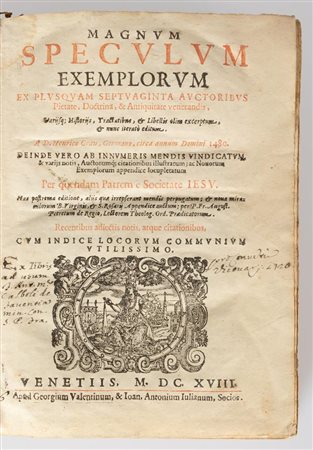 MAGNVM
SPECVLVM
EXEMPLORVM
EX PLVSQVAM SEPTVAGINTA AVCTORIBVS
Pietate, Doctrina, & Antiquitate venerandis,
Varijsq; Historijs, Tractatibus, & Libellis olim excerptum,
& nunc iterato editum.
A D. Henrico Grau, Germano, circa annum Domini 1480.
DEINDE VERO AB INNVMERIS MENDIS VINDICATVM,
& varijs notis, Auctorumq; citationibus illustratum; ac Nouorum
Exemplorum appendice locupletatum
Per quendam Patrem è Societate IESV.
Hac postrema editione, alijs quæ irrepserant mendis perpurgatum; & noua mira-
culorum B. Virginis, & S. Rosarij Appendice auctum; per P. Fr. August.
de Regio, Lectorem Theolog. Ord. Prædicatorum.
Recentibus adiectis notis, atque citationibus,
CVM INDICE LOCORVM COMMVNIVM
VTILISSIMO.
Ex libris
VENETIIS, M. DC. XVIII.
Apud Georgium Valentinum, & Ioan. Antonium Iulianum, Socios.